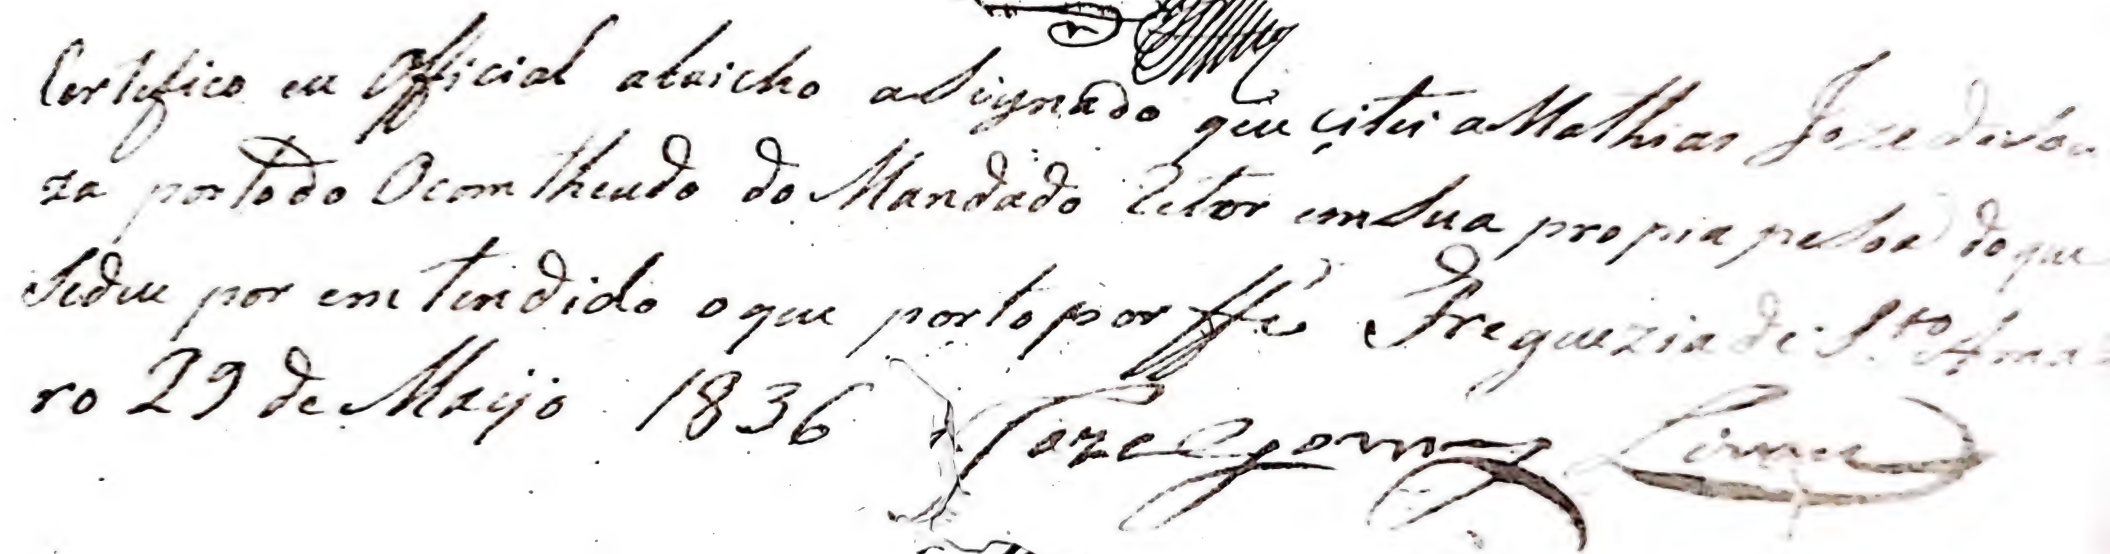 Certifico eu Official abaicho aSignado que çitei a Mathias Joze de Sou
za por todo O comtheudo do Mandado Retor em Sua propia pesoa do que
Sedeu por emtendido o que porto por ffé Freguezia de S.to Ama
ro 29 de Maijo 1836 Joze Gomes